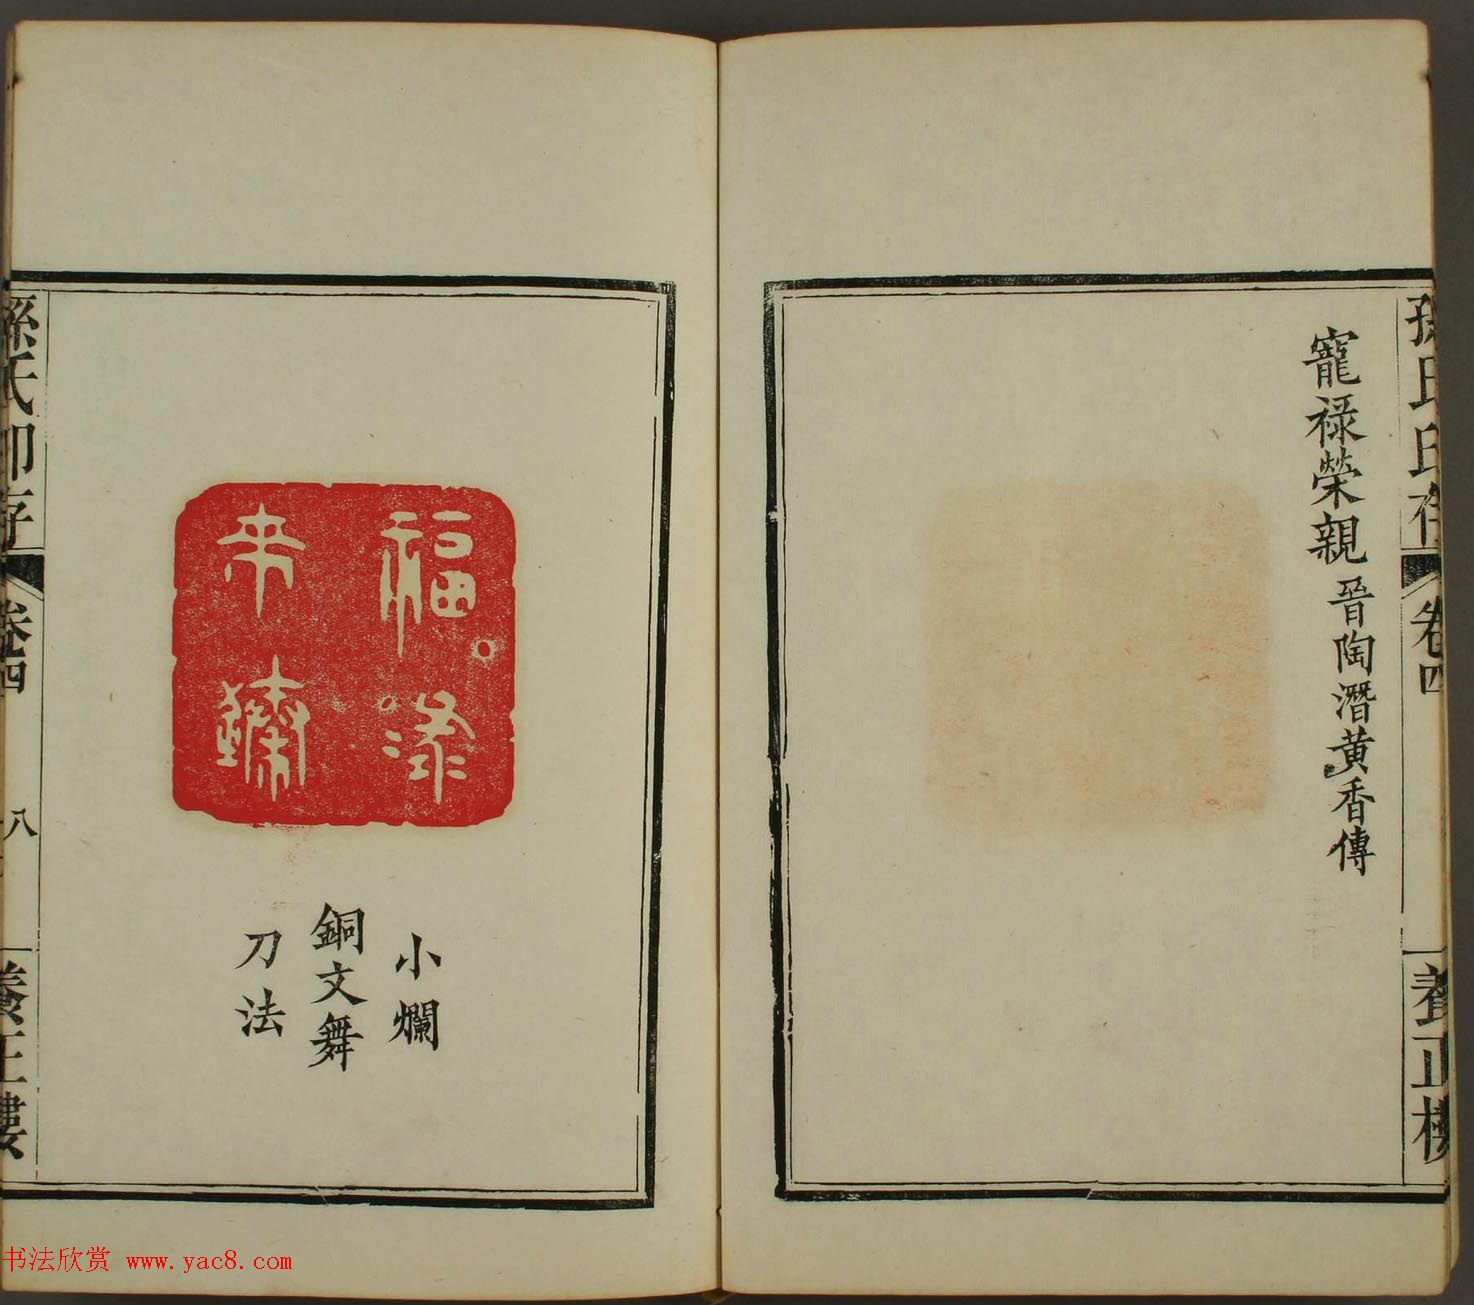 寵祿榮親 晉陶潛黃香傳
孫氏印存
卷四
養正樓
福祿
來臻
小爛
銅文舞
刀法
孫氏印存
卷四
八
養正樓
书法欣赏 www.yac8.com